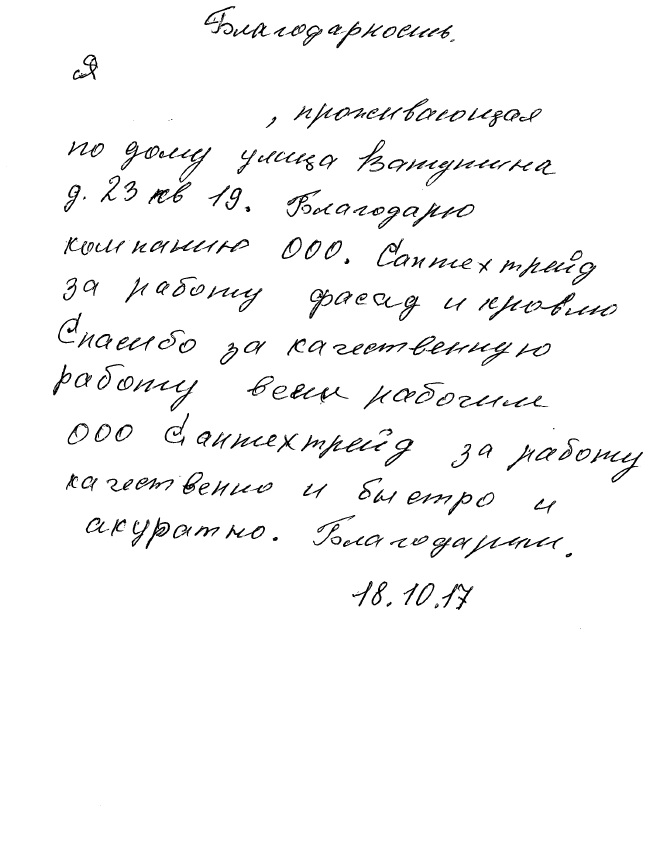 Благодарность.
Я
, проживающая
по дому улица Ватутина
д. 23 кв 19. Благодарю
компанию ООО. Сантехтрейд
за работу фасад и кровлю
Спасибо за качественную
работу всем рабочим
ООО Сантехтрейд за работу
качественно и быстро и
акуратно. Благодарим.
18.10.17